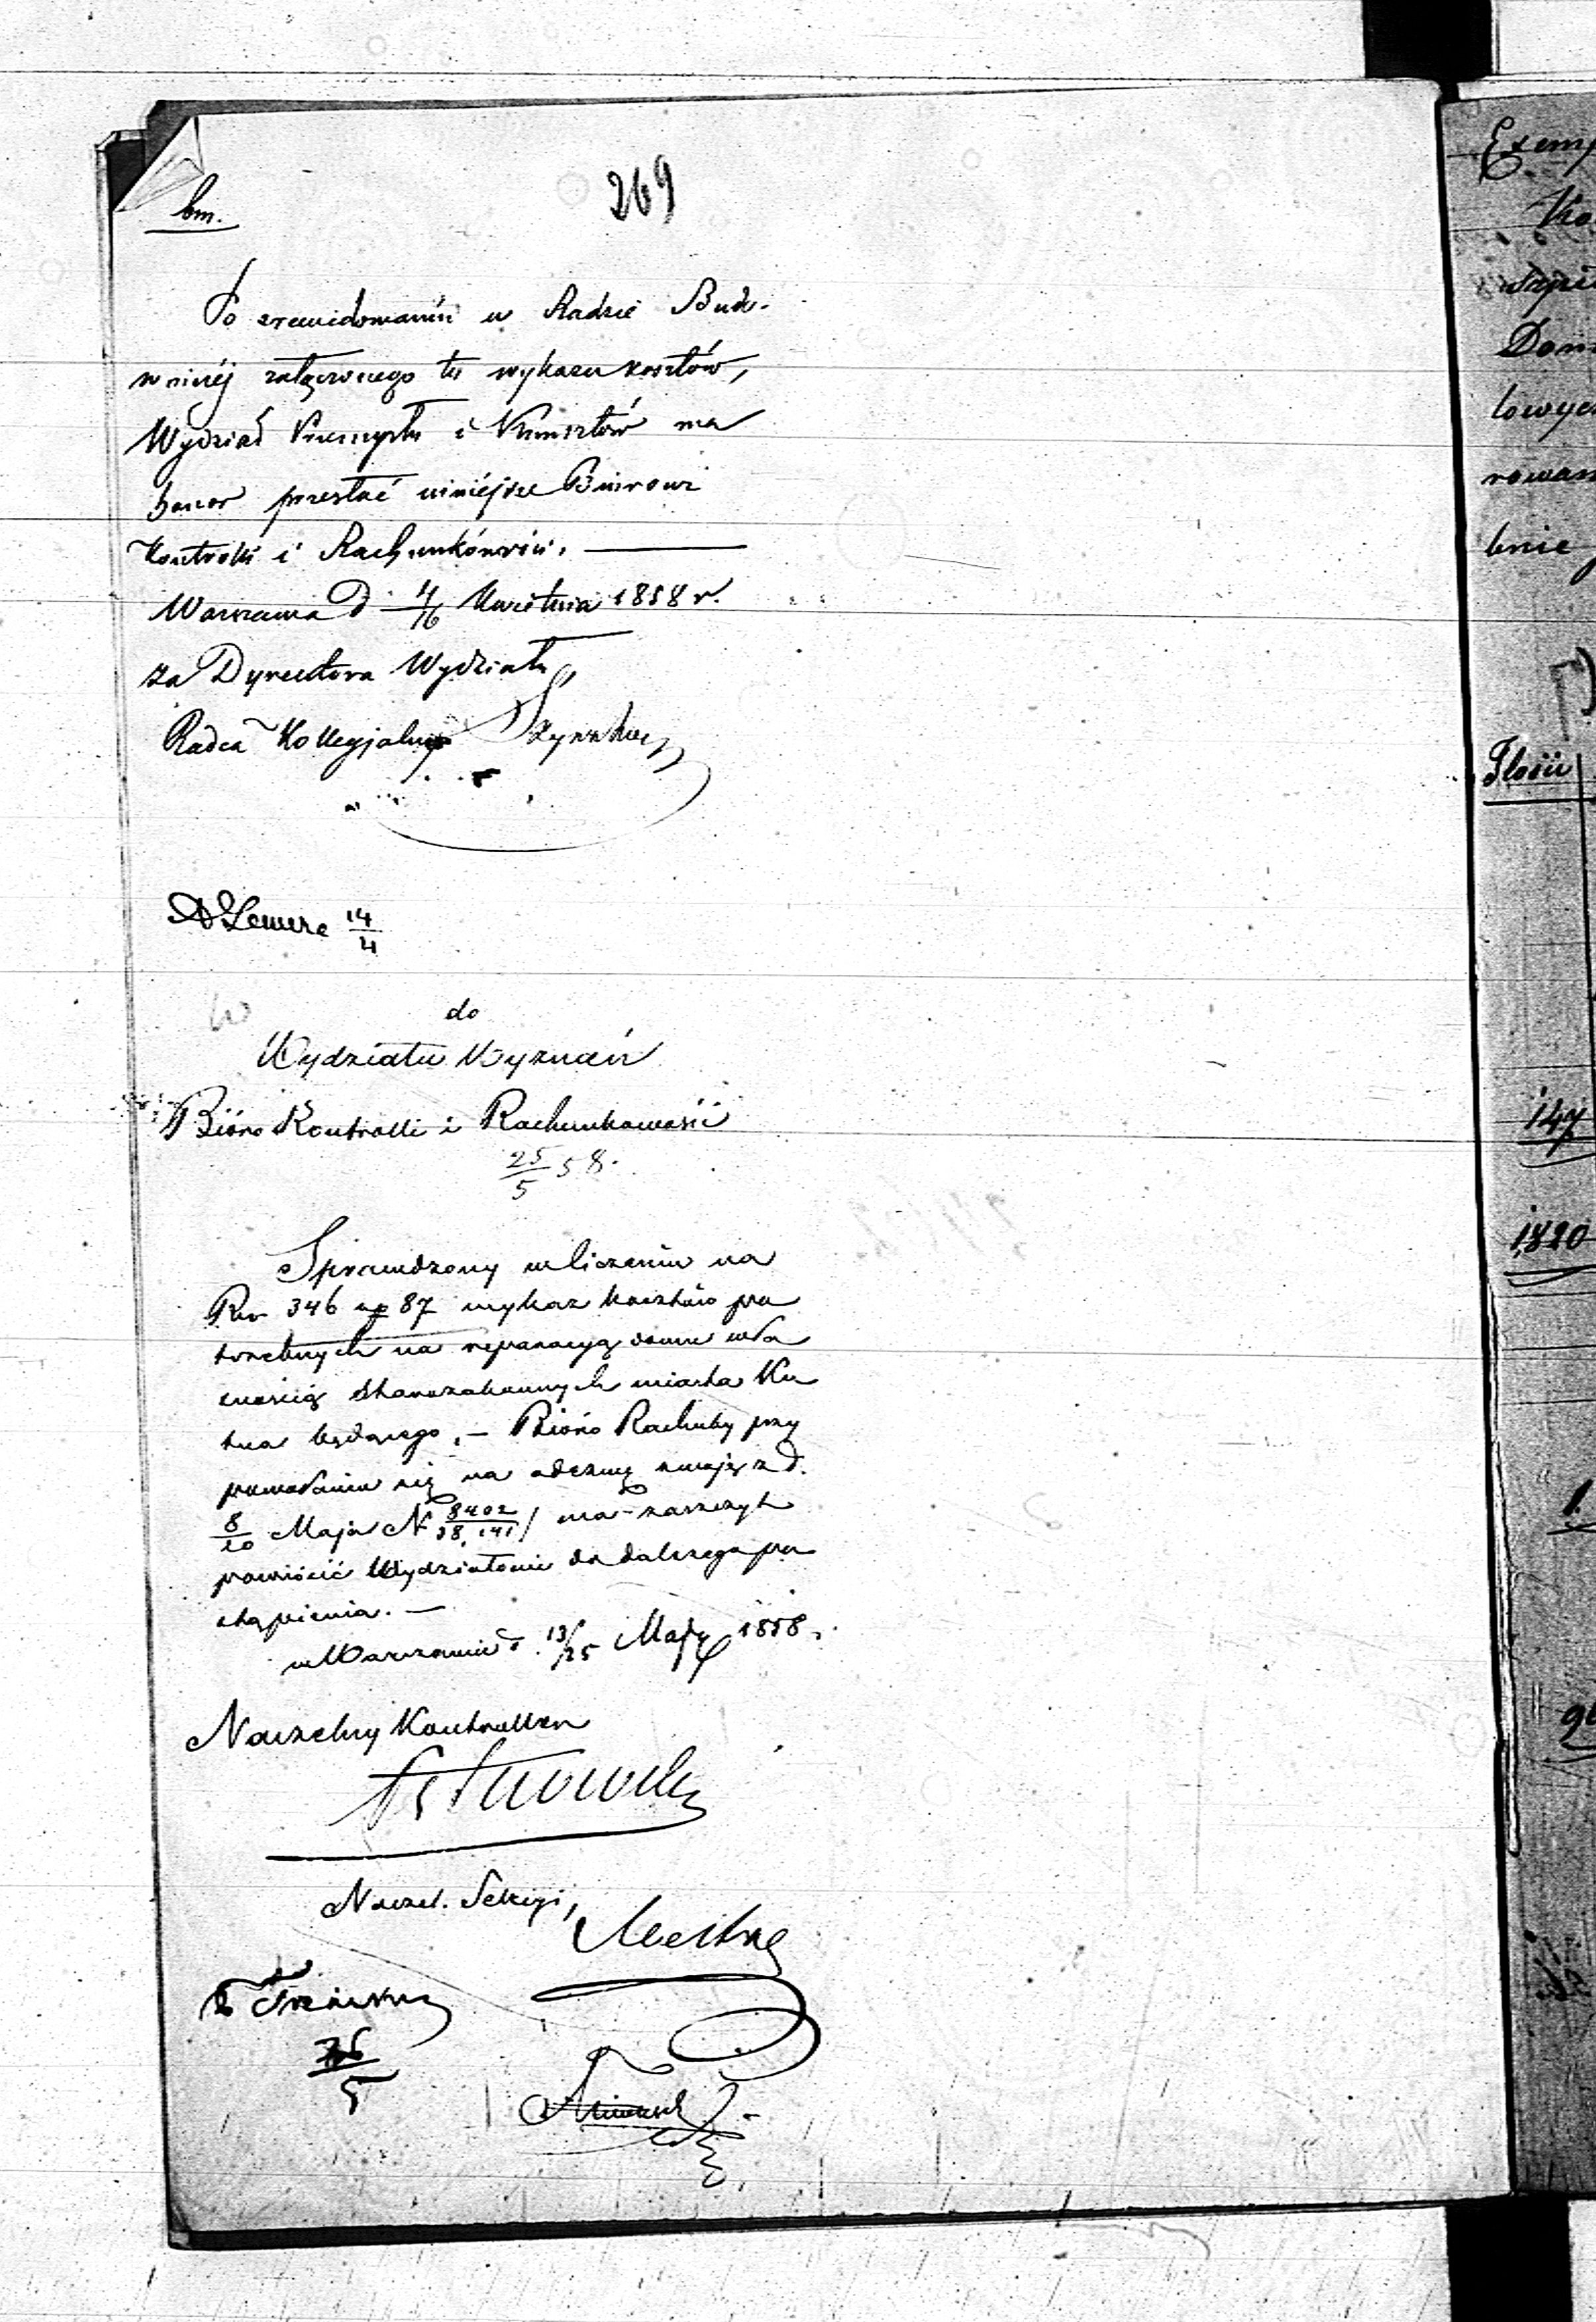 269
bm.
Po zrewidowaniu w Radzie Budo-
wniczéj załączonego tu wykazu kosztów,
Wydział Przemysłu i Kunsztów ma
honor przesłać niniejsze Biurowi
Kontroli i Rachunkowości.
Warszawa d. 4/16 Kwietnia 1858 r.
za Dyrektora Wydziału,
Radca Kollegjalny
14/4
do
Wydziału Wyznań
Bióro Kontrolli i Rachunkowości
25/5 58.
Sprawdzony w liczeniu na
Rsr 346 kp 87 wykaz kosztów po
trzebnych na reparacyą domu wła
snością Starozakonnych miasta Ku
tna będącego, — Bióro Rachuby przy
powołaniu się na odezwę swoję z d.
8/20 Maja N 8402/28,141 / ma zaszczyt
powrócić Wydziałowi do dalszego po
stąpienia. —
w Warszawie d. 13/25 Maja 1858.
Naczelny Kontroller
Naczel. Sekcyi,
25/5
Exemp
Ko
Dom
lowyc
rowan
bnie
Ilości
147
1820
1.